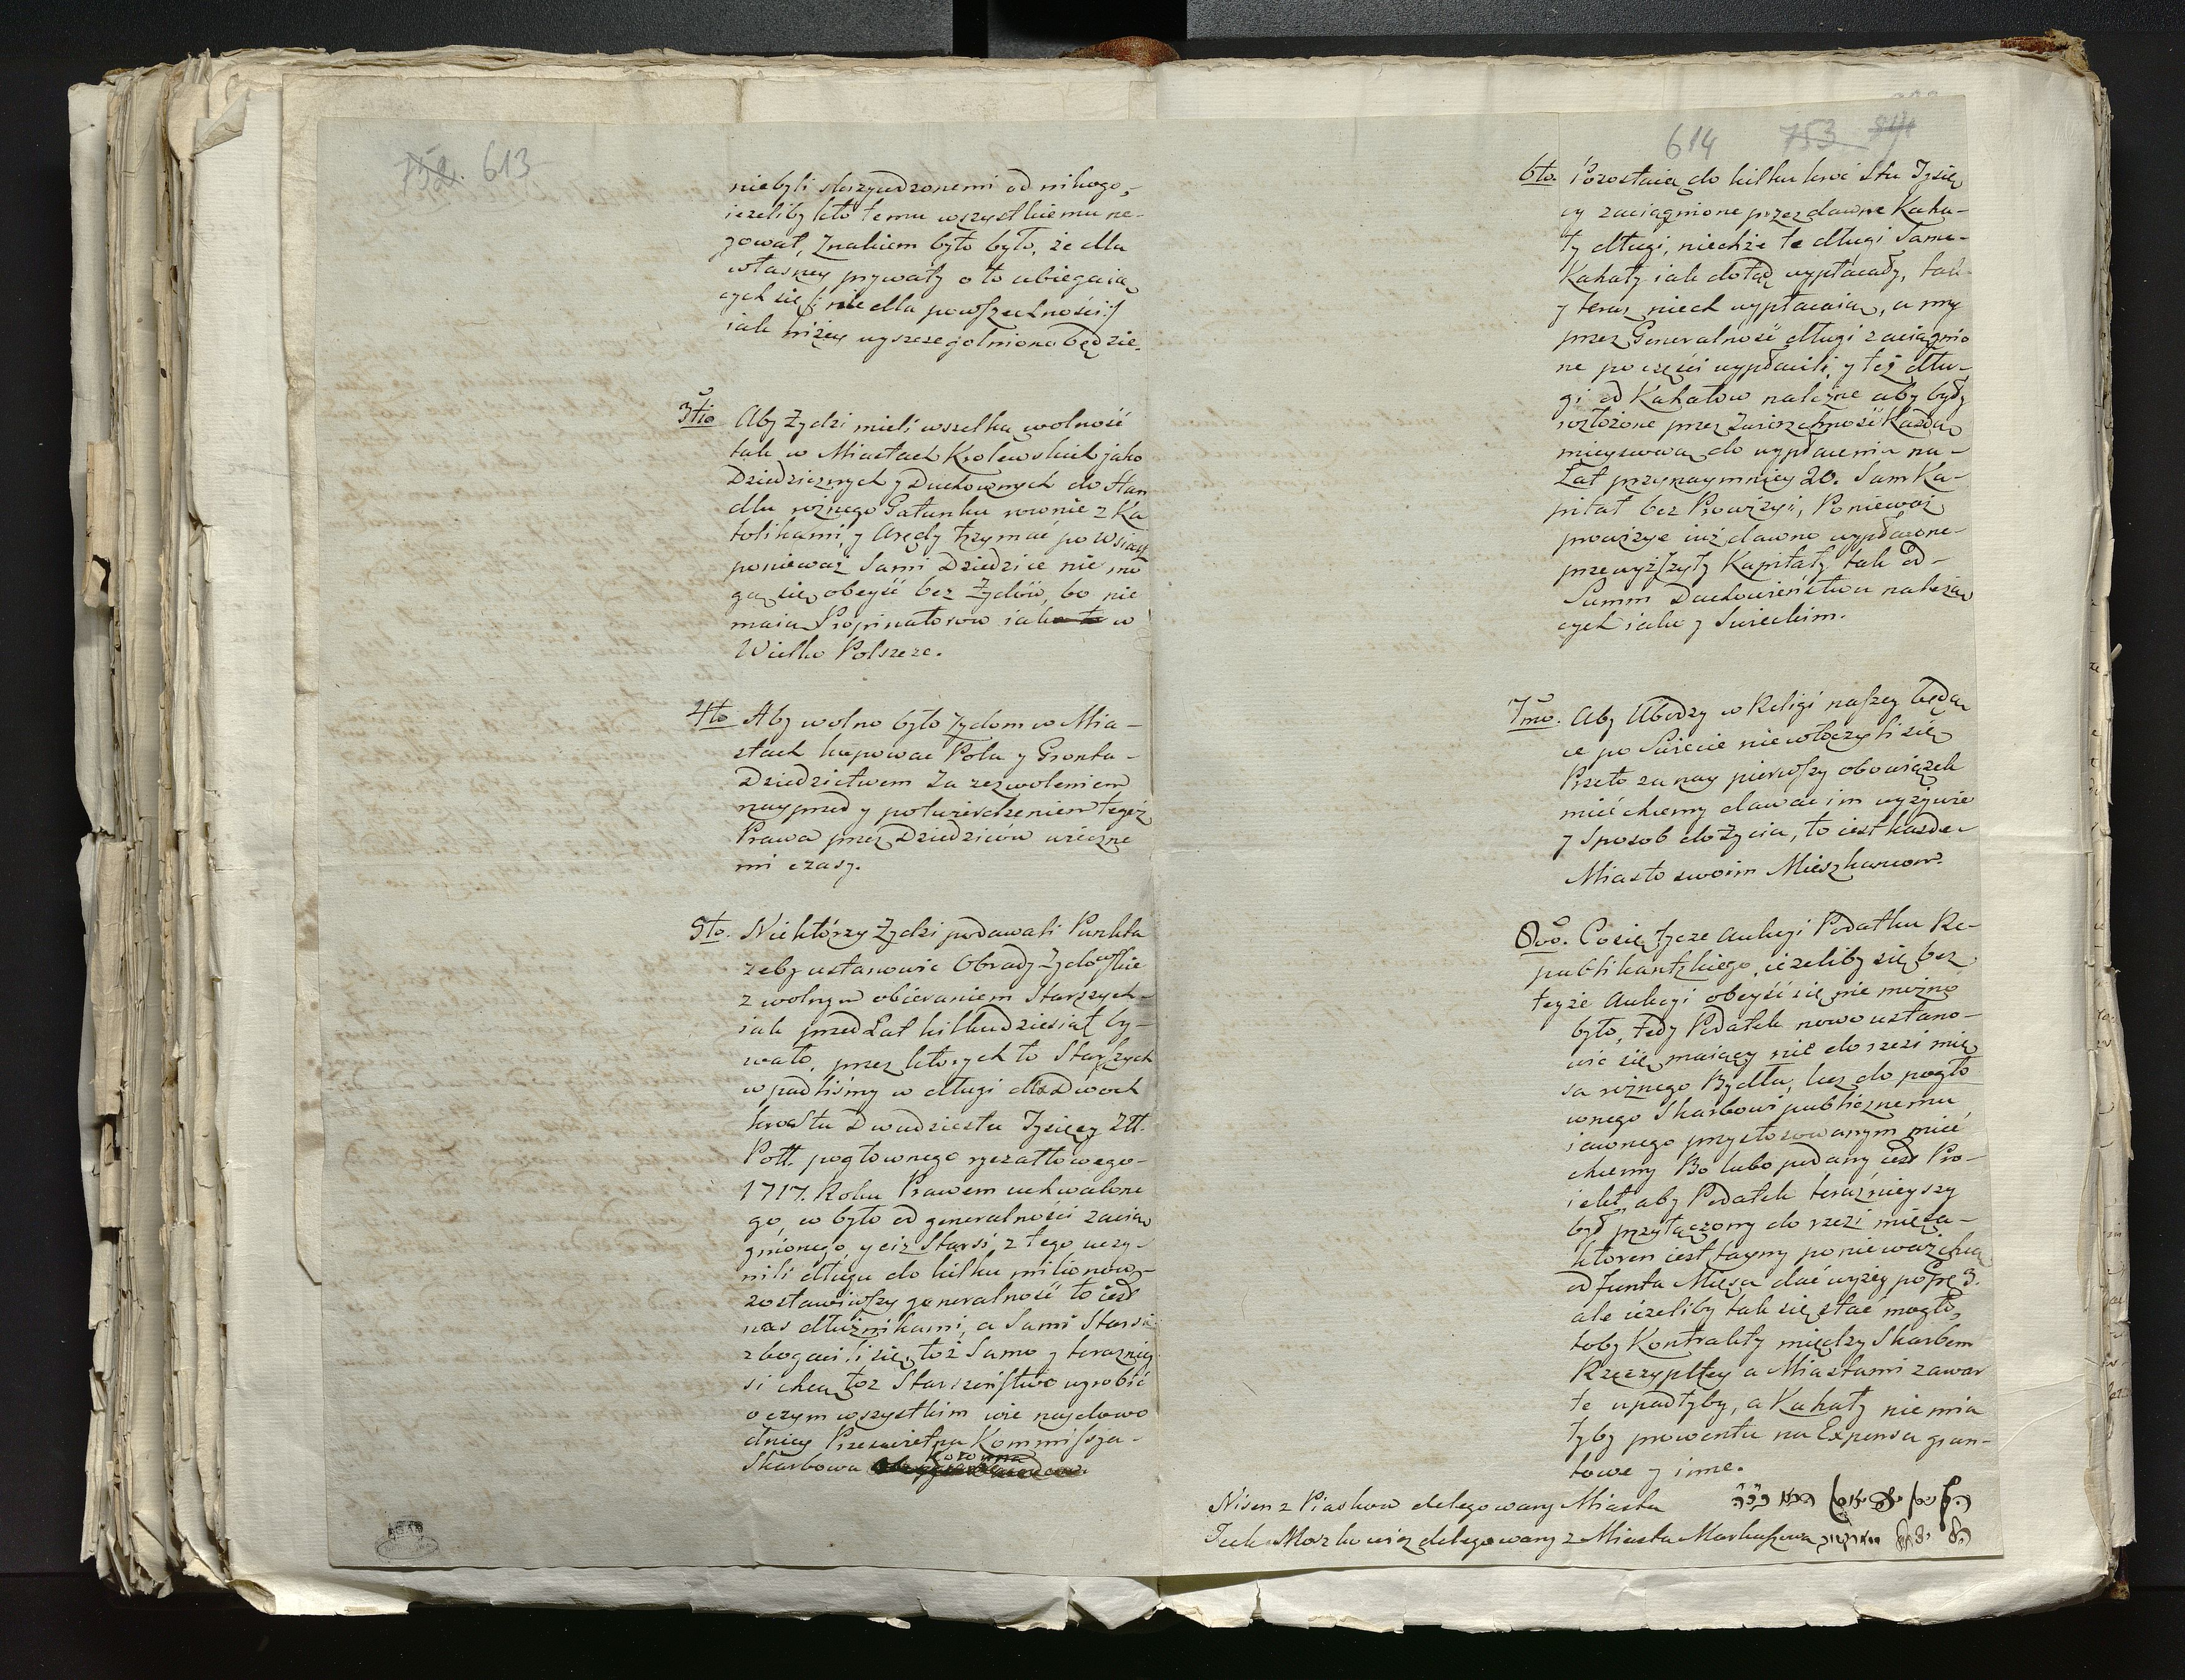 752. 613
niebyli skrzywdzonemi od nikogo,
iezeliby kto temu wszystkiemu ne-
gował, znakiem było było, że dla
własney prywaty o to ubiegaią
cych się /: nie dla powszechności :/
iak niżey wyszczegolniono będzie.
3tio Aby Zydzi mieli wszelką wolność
tak w Miastach Krolewskich jako
Dziedzicznych y Duchownych do Han
dlu rożnego Gatunku rownie z Ka
tolikami, y Arędy trzymać po Wsiach
ponieważ Sami Dziedzice nie mo
gą się obeyść bez Żydów, bo nie
maią Propinatorow iako to w
Wielko Polszcze.
4to Aby wolno było Zydom w Mia-
stach kupować Pola y Gronta-
Dziedzictwem za zezwoleniem
nayprzod y potwierdzeniem tegoż
Prawa przez Dziedziców wieczne
mi czasy.
5to. Niektórzy Zydzi podawali Punkta
zeby ustanowić Obrady Zydowskie
z wolnym obieraniem Starszych-
iak przed Lat kilkudziesiąt by-
wało, przez ktorych to Starszych
wpadliśmy w długi dla Dwoch
kroć Stu Dwudziestu Tysięcy Złł.
Poll. pogłownego ryczałtowego-
1717. Roku Prawem uchwalone
go, w było od generalności zacią
gnionego, y ciż Starsi z tego uczy-
nili długu do kilku milionow-
zostawiwszy generalność to iest
nas dłużnikami, a Sami Starsi
zbogacili się, toż Samo y terazniey
si chcą toż Starszeństwo wyrobić
o czym wszystkim wie naydowo
dniey Prześwietna Kommissya-
Koronna
Skarbowa
614 753
6to. Pozostaią do kilku kroć Stu Tysię
cy zaciągnione przez dawne Kaha-
ły długi, niechże te długi Same-
Kahały iak dotąd wypłacały, tak
y teraz niech wypłacaią, a my
przez Generalność długi zaciągnio
ne po części wypłacili, y też dłu-
gi od Kahałow należne aby były
rozłożone przez Zwierzchność Każdą
mieyscową do wypłacenia na-
Lat przynaymniey 20. Sam Ka-
pitał bez Prowizyi, Ponieważ
prowizye iuż dawno wypłacone-
przewyższyły Kapitały tak od-
Summ Duchowieństwu należą
cych iako y Swieckim.
7mo. Aby Ubodzy w Religi naszey będą
ce po Swiecie niewłoczyli się
Przeto za nay pierwszy obowiązek
mieć chcemy dawać im wyżywie
y Sposob do Życia, to iest każde-
Miasto swoim Mieszkancom.
8vo. Co się tycze Aukcyi Podatku Re-
publikantzkiego, iezeliby się bez
teyże Aukcyi obeyść się nie możno
było, tedy Podatek nowo ustano-
wić się maiący nie do rzezi mię
sa rożnego Bydła, lecz do pogło
wnego Skarbowi publicznemu
iawnego przystosowanym mieć
chcemy Bo lubo podany iest Pro-
iekt, aby Podatek teraznieyszy
był przyłączony do rzezi mięsa-
ktoren iest tayny ponieważ chcą
od funta Mięsa dać wyżey po gr 3.
ale iezeliby tak się stać mogło,
toby Kontrakty między Skarbem
Rzeczyplltey a Miastami zawar
te upadłyby, a Kahały nie mia
łyby prowentu na Expensa grun-
towe y inne.
Nisen z Piaskow delegowany Miasta
Icek Moszkowicz delegowany z Miasta Markuszowa